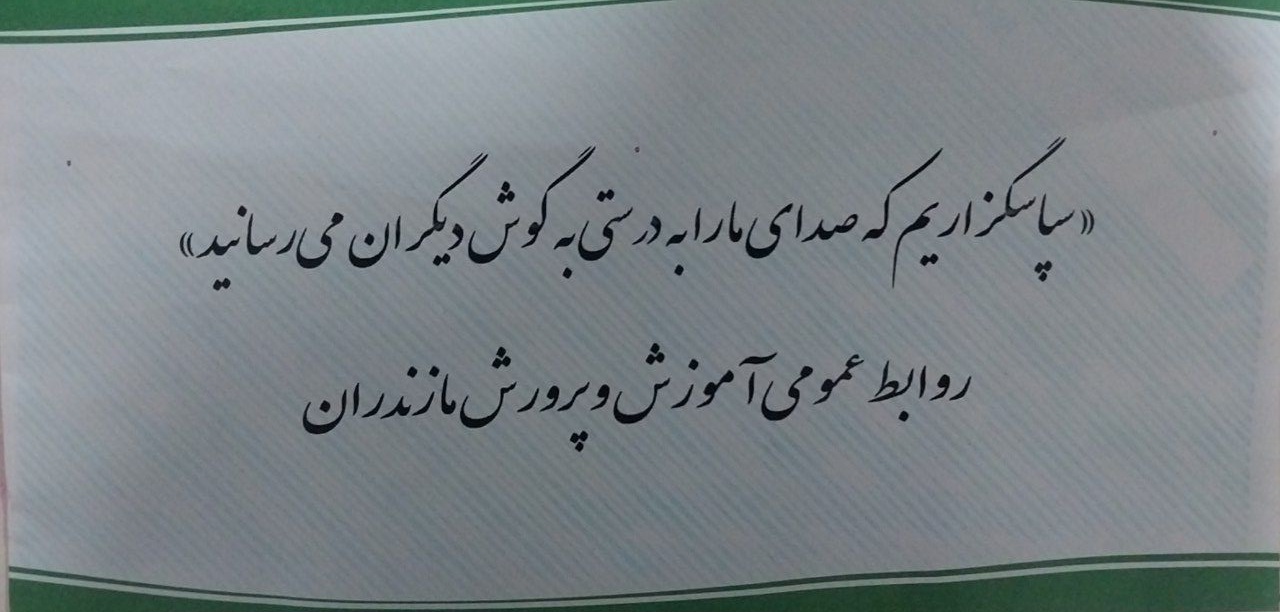 «سپاسگزاریم که صدای ما را به درستی به گوش دیگران می رسانید»
روابط عمومی آموزش و پرورش مازندران